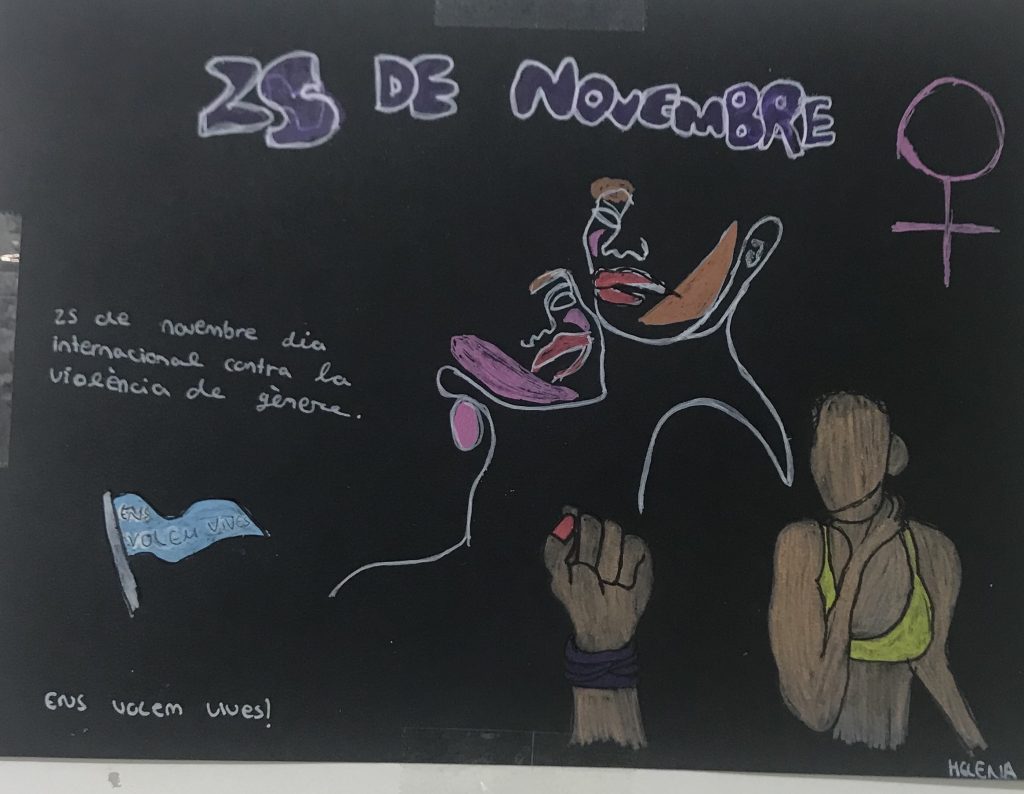 25 DE NOVEMBRE
25 de novembre dia
internacional contra la
violència de gènere.
ENS
VOLEM VIVES
ENS VOLEM VIVES!
HELENA